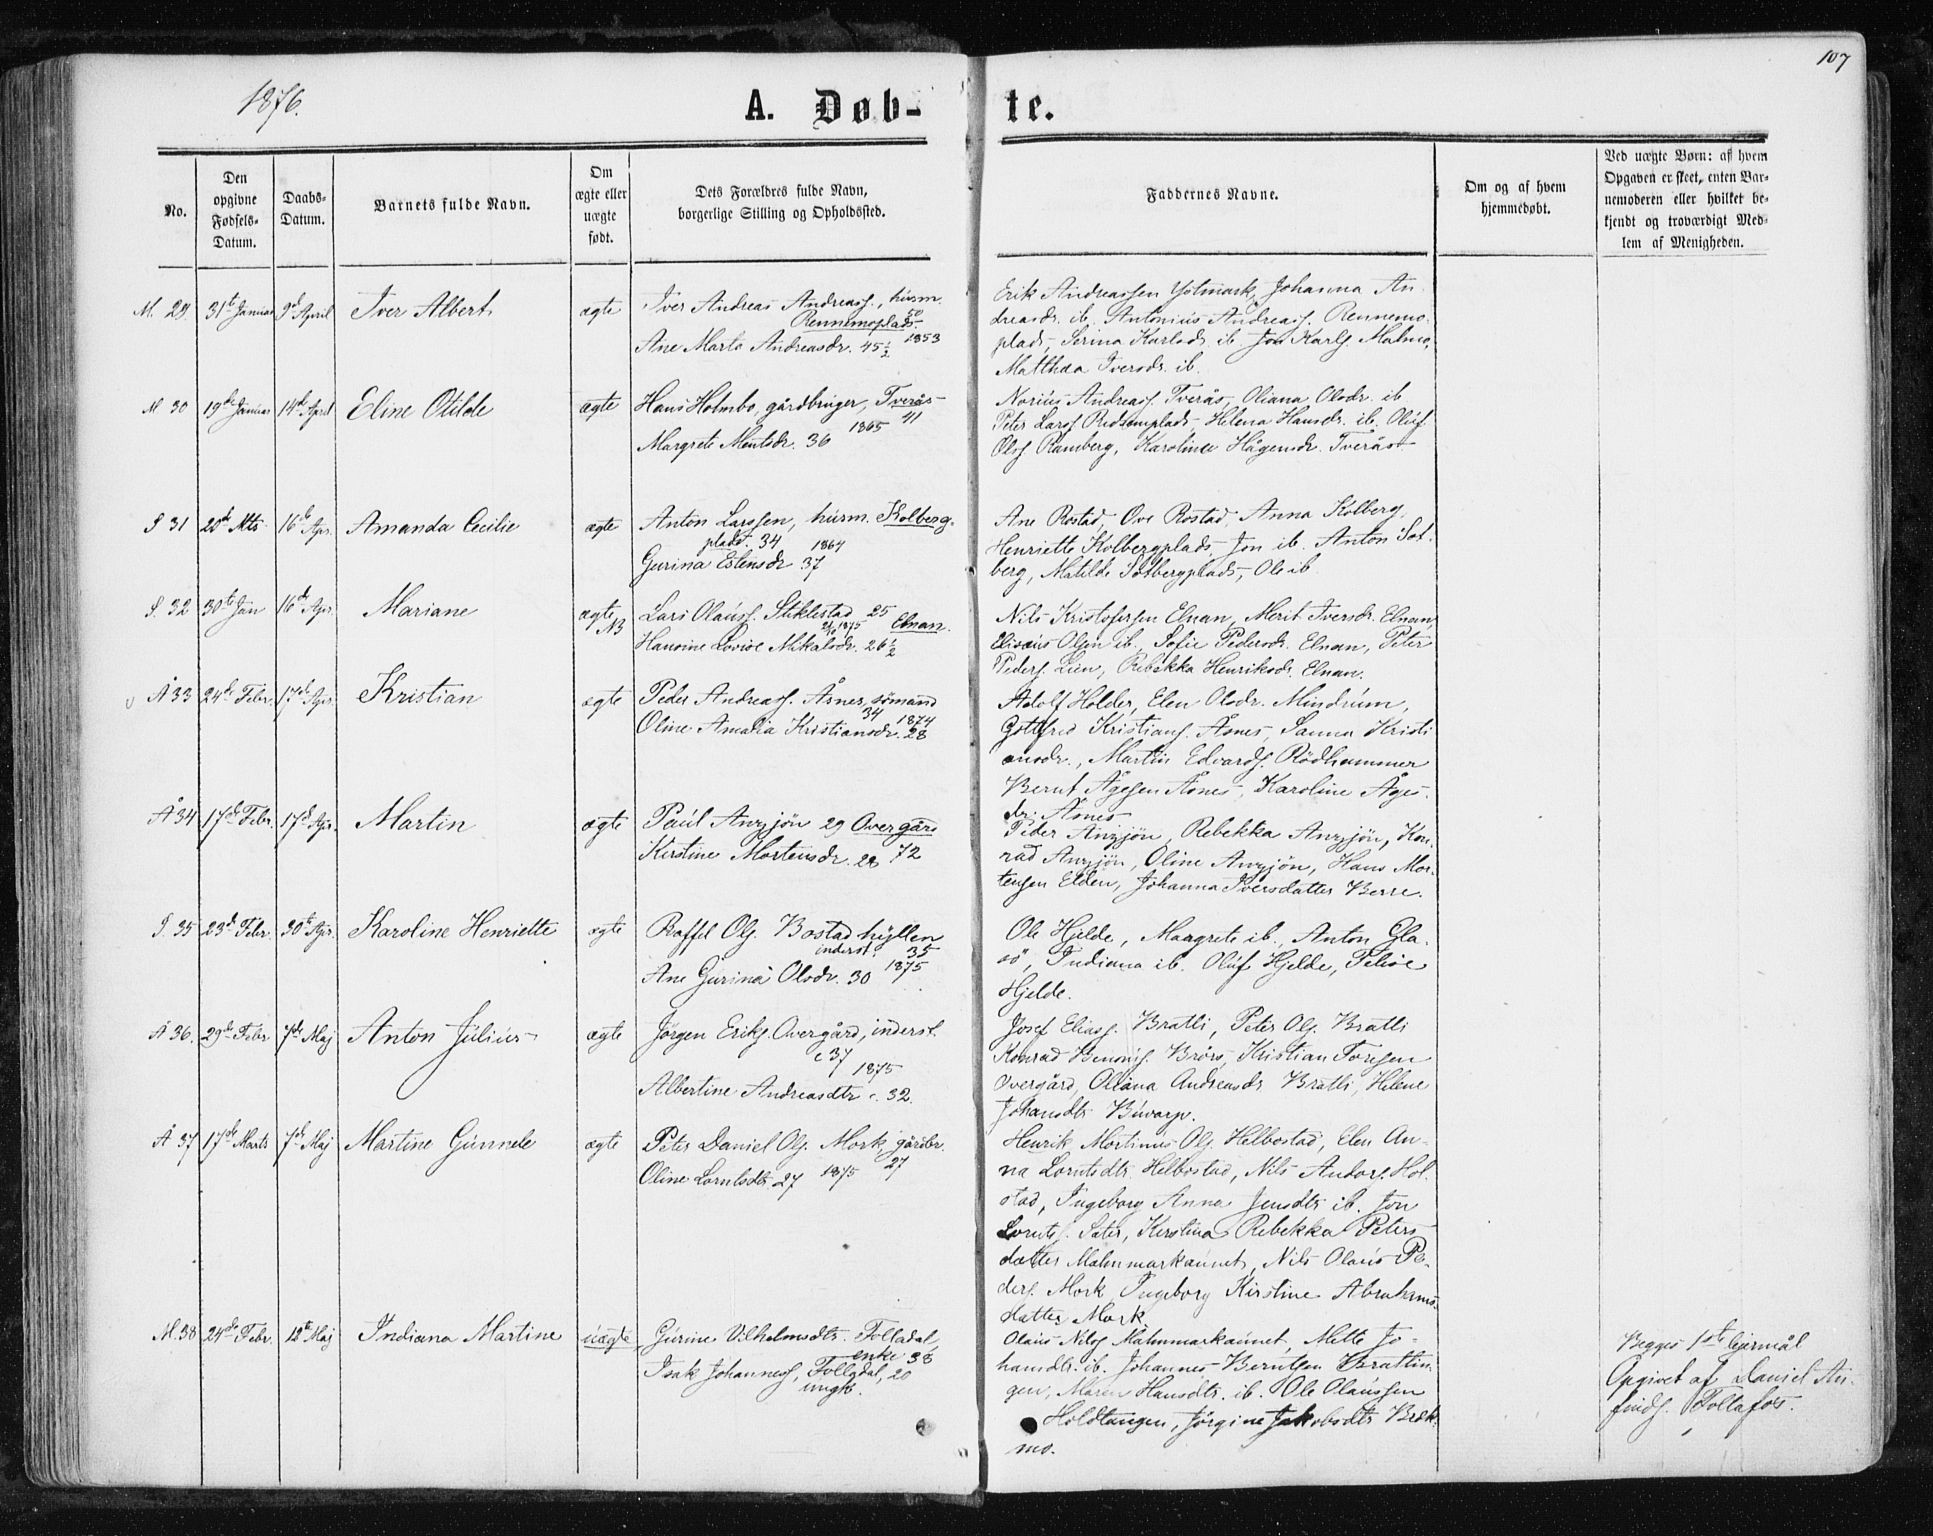 107
1876.
A. Døb-
te.
No.
Den opgivne Fødsels-Datum.
Daabs-Datum.
Barnets fulde Navn.
Om ægte eller uægte født.
Dets Forældres fulde Navn, borgerlige Stilling og Opholdssted.
Faddernes Navne.
Om og af hvem hjemmedøbt.
Ved uægte Børn: af hvem Opgaven er skeet, enten Barnemoderen eller hvilket bekjendt og troværdigt Medlem af Menigheden.
M. 29. 31te Januar 9de April Iver Albert ægte Iver Andreas Andreass., husm.
Rennemoplads. 50
Ane Marta Andreasdr. 45½ 1853
Erik Andreassen Holmark, Johanna An-
dreasdr. ib. Antonius Andreass. Rennemo-
plads, Serina Karlsdr. ib. Jon Karls. Malmo,
Mathea Iversdr. ib.
M 30 19de Januar 14de April Eline Otilde ægte Hans Holmbo, gårdbruger, Tverås
1865 41
Margrete Mentsdr. 36
Norius Andreass. Tverås, Oliana Olsdr. ib
Peter Larss. Redsemplads, Helena Hansdr. ib. Oluf
Olss. Ramberg, Karolina Hågensdr. Tverås
S 31 20de Mts 16de Apr. Amanda Cecilie ægte Anton Larssen, husm. Kolberg-
pladst. 34 1864
Gurina Estensdr 37
Ane Rostad, Ove Rostad, Anna Kolberg,
Henriette Kolbergplads, Jon ib. Anton Sol-
berg, Matilde Solbergplads, Ole ib.
S. 32 30te Jan 16de Apr. Mariane ægte NB Lars Olauss. Stiklestad 25
1875 Elnan.
Hansine Lovise Mikalsdr. 26½
Nils Kristofersen Elnan, Merit Iversdr. Elnan
Elisæus Olsen ib., Sofie Pedersdr. Elnan, Peter
Peders. Lien, Rebekka Henriksdr. Elnan.
Å 33 24de Febr. 17de Apr. Kristian ægte Peder Andreass. Åsnes, sømand
34 1874
Oline Amalia Kristiansdr. 28
Adolf Holder, Elen Olsdr. Mindrum,
Gottfred Kristians. Åsnes, Sanna Kristi
ansdr., Martin Edvards. Rödhammer
Bernt Ågesen Åsnes, Karoline Åges-
dr. Åsnes
Å 34 17de Febr. 17de Apr. Martin ægte Paul Anzjön 29 Overgård
Kirstine Mortensdr. 28 72
Peder Anzjön, Rebekka Anzjön, Kon-
rad Anzjön, Oline Anzjön, Hans Mor-
tensen Elden, Johanna Iversdatter Berre.
S. 35 23de Febr. 30te Apr. Karoline Henriette ægte Roffel Ols. Bostadhyllen
inderst. 35
Ane Gurina Olsdr. 30 1875
Ole Hjelde, Maagrete ib., Anton Gla-
sö, Indiana ib. Oluf Hjelde, Pelise
Hjelde.
Å 36. 29de Febr 7de Maj Anton Julius ægte Jörgen Eriks. Overgård, inderst.
c 37
1875
Albertine Andreasdtr c. 32.
Josef Eliass. Bratli, Peter Ols. Bratli
Konrad Benonis. Brörs, Kristian Toresen
Overgård, Oliana Andreasdr Bratli, Helene
Johansdtr Buvarp.
Å 37 17de Marts 7de Maj Martine Gunnele ægte Peter Daniel Ols. Mork, gårdbr.
Oline Lorntsdtr. 27 1875 27
Henrik Martinus Ols. Helbostad, Elen An-
na Lorntsdtr Helbostad, Nils Andors. Hol-
stad, Ingeborg Anna Jensdtr ib. Jon
Lornts. Sater, Kerstina Rebekka Peters
datter Malmmarkaunet, Nils Olaus Pe-
ders. Mork, Ingeborg Kirstine Abrahams-
datter Mork.
M. 38 24de Febr. 12te Maj Indiana Martine uægte Gurine Vilhelmsdtr. Folladal,
enke 38
Isak Johanness, Folladal, 20
ungk.
Olaus Nilss Malmmarkaunet, Mette Jo-
hansdtr. ib. Johannes Berntsen Brattin-
gen, Maren Hansdtr. ib. Ole Olaussen
Holdtangen, Jörgine Jakobsdtr Bræk-
mo.
Begges 1ste lejermål
Opgivet af Daniel An-
finds. Follafos.